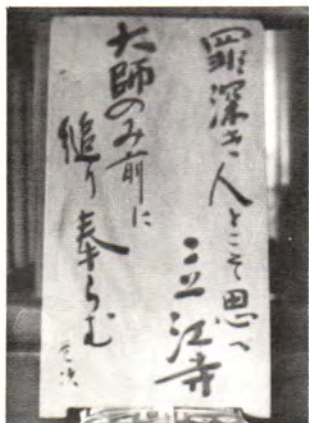 罪深き人とこそ思へ
立江寺
大師のみ前に
縋り奉らむ